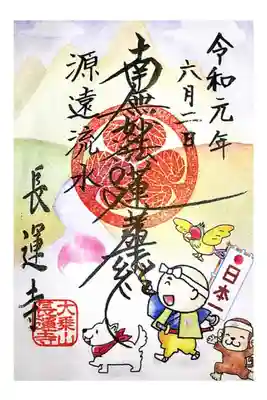 令和元年
六月二日
南無妙法蓮華経
源遠流水
長運寺
大乗山
長運寺
日本